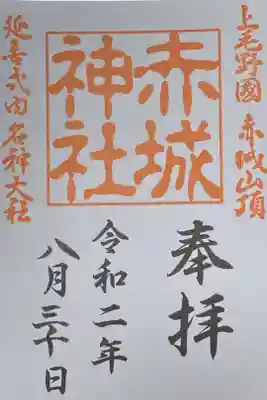 上毛野國 赤城山頂
赤城
神社
延喜式内 名神大社
奉拝
令和二年
八月三十日